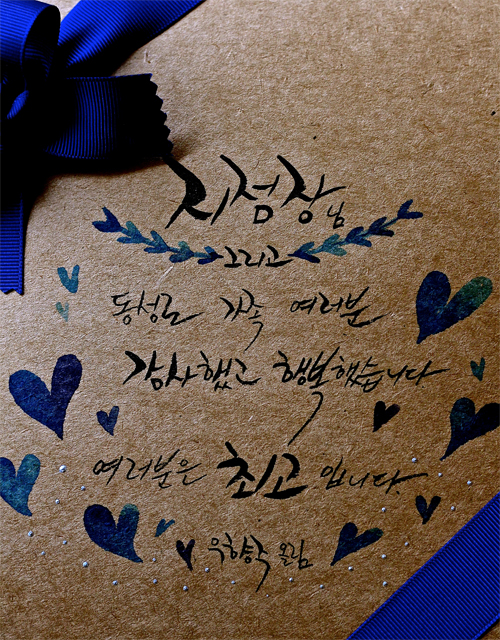 지점장님
그리고
동성로 가족 여러분
감사했고 행복했습니다
여러분은 최고입니다.
우향숙 올림